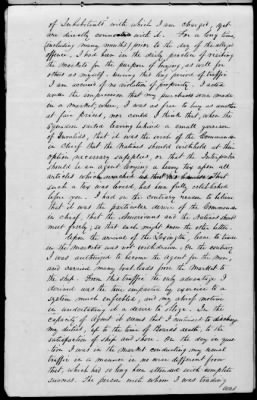 of Inhabitants' with which I am charged, yet
are directly connected with it. For a long time
(including many months) prior to the day of the alleged
offence, I had been in the daily practice of visiting
the markets for the purpose of buying, as well for
others as myself. During that long period of traffic
I am accused of no violation of property. I acted
under the impression that my purchases were made
in a market, where I was as free to buy as another
at fair prices, nor could I think that, when the
Squadron sailed leaving behind a small garrison
of Invalids, that it was the wish of the Commander
in Chief that the Natives should withhold at their
option necessary supplies, or that the Inhabitants
should in an agent buying a heavy tax upon all
articles which
such a tax was levied, has been fully established
before you. I had on the contrary reason to believe
that it was the particular desire of the Commander
in chief, that the Americans and the Natives should
meet freely, so that each might know the other better.
Upon the arrival of the Lexington, here to trade
in the markets was not withdrawn. On the contrary
I was authorized to become the Agent for the men,
and carried many boat loads from the Market to
the ship. From this traffic the only advantage I
derived was the time imparted by exercise to a
system much enfeebled, and my chief motive
in undertaking a desire to oblige. In the
capacity of Agent it seems that I continued to discharge
my duties, up to the time of death, to the
satisfaction of ship and shore. On the day in ques
tion I was in the market conducting my usual
traffic in a manner in no wise different from
that, which has so long been attended with complete
success. The person with whom I was trading
was